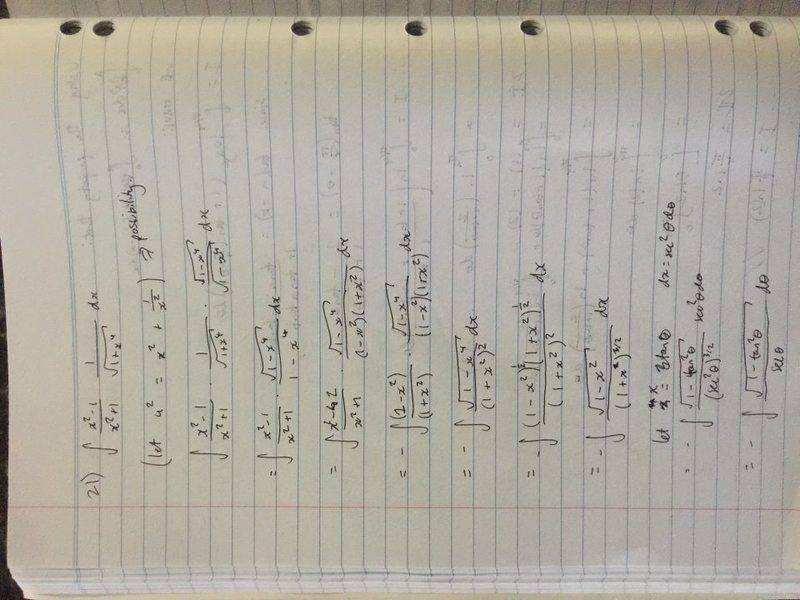 21) ∫ (x²-1)/(x²+1) 1/√(1+x⁴) dx
(let u² = x² + 1/x²) ⇒ possibility.
∫ (x²-1)/(x²+1) · 1/√(1+x⁴) · √(1-x⁴)/√(1-x⁴) dx
= ∫ (x²-1)/(x²+1) · √(1-x⁴)/(1-x⁴) dx
= ∫ /(x²+1) · √(1-x⁴)/((1-x²)(1+x²)) dx
= - ∫ (1-x²)/(1+x²) · √(1-x⁴)/((1-x²)(1+x²)) dx
= - ∫ √(1-x⁴)/(1+x²)² dx
= - ∫ (1-x²)^½ (1+x²)^½/(1+x²)² dx
= - ∫ √(1-x²)/(1+x²)^3/2 dx
let x = tanθ dx = sec²θ dθ
= - ∫ √(1-tan²θ)/(sec²θ)^3/2 sec²θ dθ
= - ∫ √(1-tan²θ)/secθ dθ